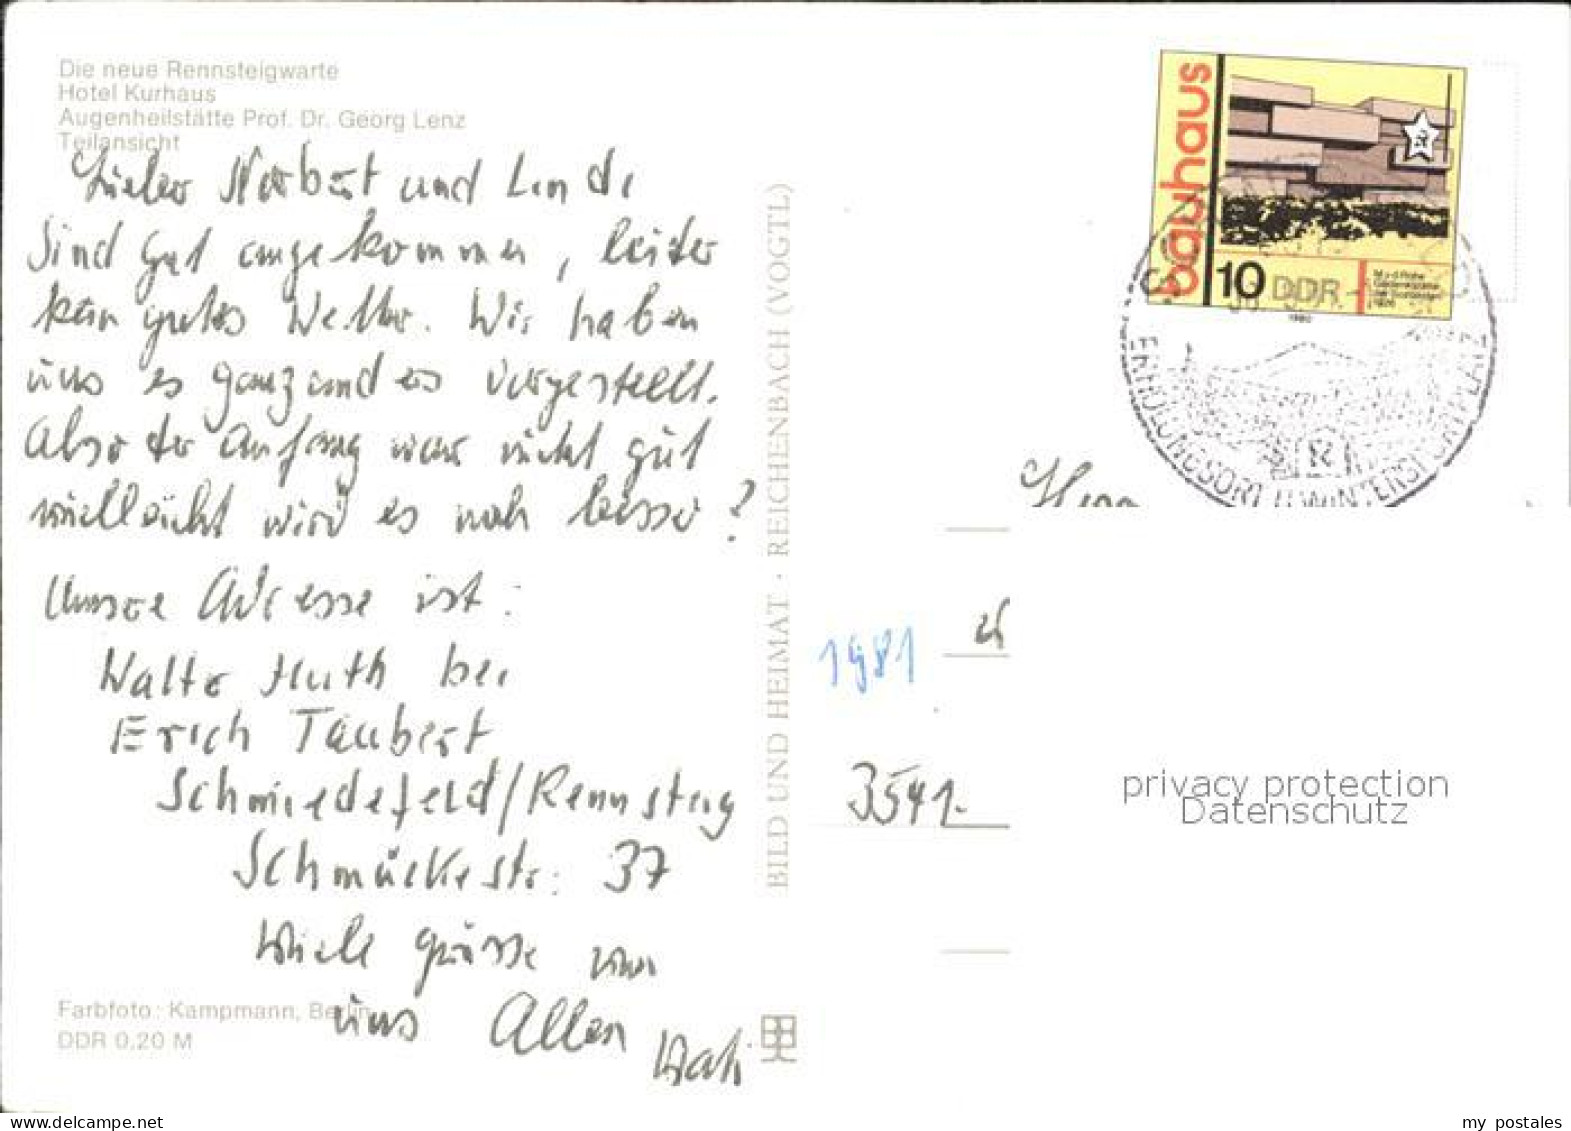 Die neue Rennsteigwarte
Hotel Kurhaus
Augenheilstätte Prof. Dr. Georg Lenz
Teilansicht
Lieber Norbert und Lindi
Sind gut angekommen, leider
kein gutes Wetter. Wir haben
uns es ganz anders vorgestellt.
Also der Anfang war nicht gut
vielleicht wird es noch besser?
Unsere Adresse ist:
Walter Huth bei
Erich Taubert
Schmiedefeld/Rennsteig
Schmückestr. 37
Viele Grüsse von
uns Allen
Farbfoto: Kampmann, Berlin
DDR 0,20 M
BILD UND HEIMAT · REICHENBACH (VOGTL)
bauhaus
10 DDR
1980
ERHOLUNGSORT U. WINTERSPORTPLATZ
1981
3541
privacy protection
Datenschutz
www.delcampe.net
my_postales